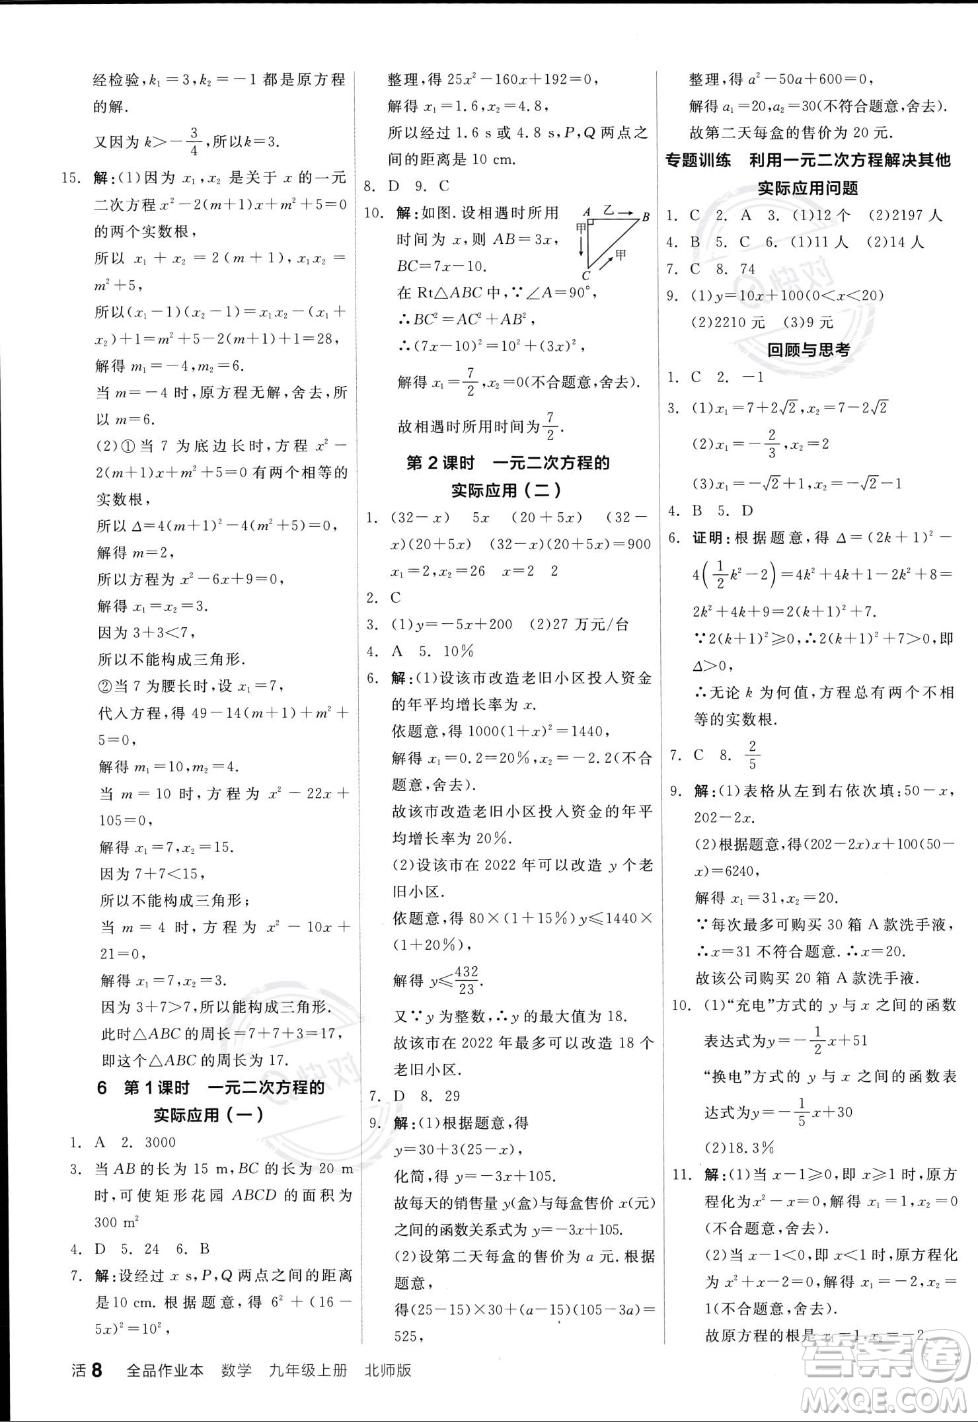 经检验,k₁=3,k₂=-1 都是原方程
的解.
又因为 k>-3/4,所以 k=3.
15. 解:(1)因为 x₁,x₂ 是关于 x 的一元
二次方程 x²-2(m+1)x+m²+5=0
的两个实数根,
所以 x₁+x₂=2(m+1),x₁x₂=
m²+5,
所以(x₁-1)(x₂-1)=x₁x₂-(x₁+
x₂)+1=m²+5-2(m+1)+1=28,
解得 m=-4 或 m=6.
当 m=-4 时,原方程无解,舍去,所
以 m=6.
(2)①当 7 为底边长时,方程 x²-
2(m+1)x+m²+5=0 有两个相等的
实数根,
所以 Δ=4(m+1)²-4(m²+5)=0,
解得 m=2,
所以方程为 x²-6x+9=0,
解得 x₁=x₂=3.
因为 3+3<7,
所以不能构成三角形.
②当 7 为腰长时,设 x₁=7,
代入方程,得 49-14(m+1)+m²+
5=0,
解得 m₁=10,m₂=4.
当 m=10 时,方程为 x²-22x+
105=0,
解得 x₁=7,x₂=15.
因为 7+7<15,
所以不能构成三角形;
当 m=4 时,方程为 x²-10x+
21=0,
解得 x₁=3,x₂=7.
因为 3+7>7,所以能构成三角形,
此时△ABC 的周长=7+7+3=17,
即这个△ABC 的周长为 17.
6 第 1 课时 一元二次方程的
实际应用(一)
1. A 2. 3000
3. 当 AB 的长为 15 m,BC 的长为 20 m
时,可使矩形花园 ABCD 的面积为
300 m²
4. D 5. 24 6. B
7. 解:设经过 x s,P,Q 两点之间的距离
是10 cm. 根据题意,得 6²+(16-
5x)²=10²,
整理,得 25x²-160x+192=0,
解得 x₁=1.6,x₂=4.8,
所以经过 1.6 s或 4.8 s,P,Q 两点之
间的距离是 10 cm.
8. D 9. C
10. 解:如图.设相遇时所用
时间为 x,则 AB=3x,
BC=7x-10.
在 Rt△ABC 中,∵∠A=90°,
∴BC²=AC²+AB²,
∴(7x-10)²=10²+(3x)²,
解得 x₁=7/2,x₂=0(不符合题意,舍去).
故相遇时所用时间为7/2.
A 乙 B
甲
C 甲
第 2 课时 一元二次方程的
实际应用(二)
1. (32-x) 5x (20+5x) (32-
x)(20+5x) (32-x)(20+5x)=900
x₁=2,x₂=26 x=2 2
2. C
3. (1)y=-5x+200 (2)27 万元/台
4. A 5. 10%
6. 解:(1)设该市改造老旧小区投入资金
的年平均增长率为 x.
依题意,得 1000(1+x)²=1440,
解得 x₁=0.2=20%,x₂=-2.2(不符
合题意,舍去).
故该市改造老旧小区投入资金的年平
均增长率为 20%.
(2)设该市在 2022 年可以改造 y 个老
旧小区.
依题意,得 80×(1+15%)y≤1440×
(1+20%),
解得 y≤432/23.
又∵y 为整数,∴y 的最大值为 18.
故该市在 2022 年最多可以改造 18 个
老旧小区.
7. D 8. 29
9. 解:(1)根据题意,得
y=30+3(25-x),
化简,得 y=-3x+105.
故每天的销售量 y(盒)与每盒售价 x(元)
之间的函数关系式为 y=-3x+105.
(2)设第二天每盒的售价为 a 元.根据
题意,
得(25-15)×30+(a-15)(-3a+105)=
525,
整理,得 a²-50a+600=0,
解得 a₁=20,a₂=30(不符合题意,舍去).
故第二天每盒的售价为 20 元.
专题训练 利用一元二次方程解决其他
实际应用问题
1. C 2. A 3. (1)12 个 (2)2197 人
4. B 5. C 6. (1)11人 (2)会
7. C 8. 74
9. (1)y=10x+100(0<x<20)
(2)2210 元 (3)9 元
回顾与思考
1. C 2. -1
3. (1)x₁=7+2√2,x₂=7-2√2
(2)x₁=-2/3,x₂=2
(3)x₁=-√2+1,x₂=√2+1
4. B 5. D
6. 证明:根据题意,得 Δ=(2k+1)²-
4(1/2k²-2)=4k²+4k+1-2k²+8=
2k²+4k+9=2(k+1)²+7.
∵2(k+1)²≥0,∴2(k+1)²+7>0,即
Δ>0,
∴无论 k 为何值,方程总有两个不相
等的实数根.
7. C 8. 2/5
9. 解:(1)表格从左到右依次填:50-x,
202-2x.
(2)根据题意,得(202-2x)x+100(50-
x)=6240,
解得 x₁=31,x₂=20.
∵每次最多可购买 30 箱 A 款洗手液,
∴x=31 不符合题意,∴x=20.
故该公司购买 20 箱 A 款洗手液.
10. (1)“充电”方式的 y 与 x 之间的函数
表达式为 y=-1/2x+51
“换电”方式的 y 与 x 之间的函数表
达式为 y=-1/5x+50
(2)18.3%
11. 解:(1)当 x-1≥0,即 x≥1时,原方
程化为 x²-x=0,解得 x₁=1,x₂=0
(不合题意,舍去).
(2)当 x-1<0,即 x<1时,原方程化为
x²+x-2=0,解得 x₁=-2,x₂=
1(不合题意,舍去).
故原方程的根为 x₁=1,x₂=-2.
活 8 全品作业本 数学 九年级上册 北师版